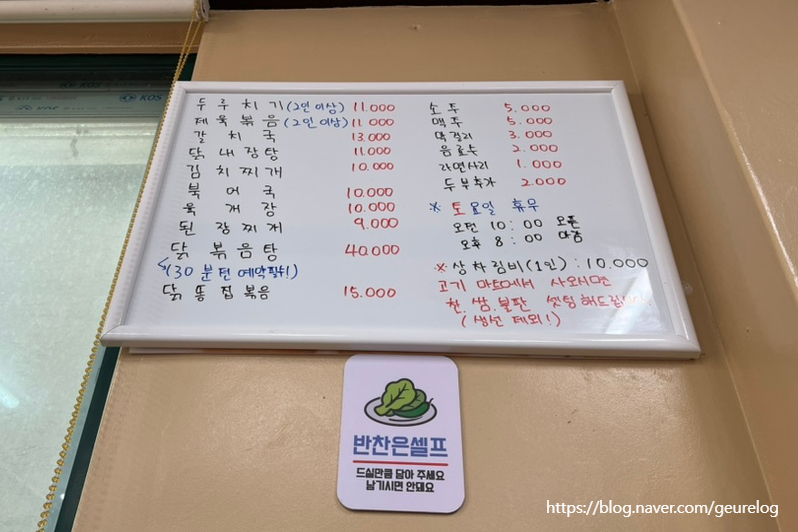 두루치기(2인 이상) 11.000
제육볶음(2인 이상) 11.000
갈치국 13.000
닭내장탕 11.000
김치찌개 10.000
북어국 10.000
육개장 10.000
된장찌개 9.000
닭볶음탕 40.000
(30분전 예약필수!)
닭똥집볶음 15.000
소주 5.000
맥주 5.000
막걸리 3.000
음료수 2.000
라면사리 1.000
두부추가 2.000
※ 토요일 휴무
오전 10:00 오픈
오후 8:00 마감
※상차림비(1인) : 10.000
고기 마트에서 사오시면
찬.쌈.불판 셋팅해드립니다
(생선 제외!)
반찬은셀프
드실만큼 담아 주세요
남기시면 안돼요
https://blog.naver.com/geurelog